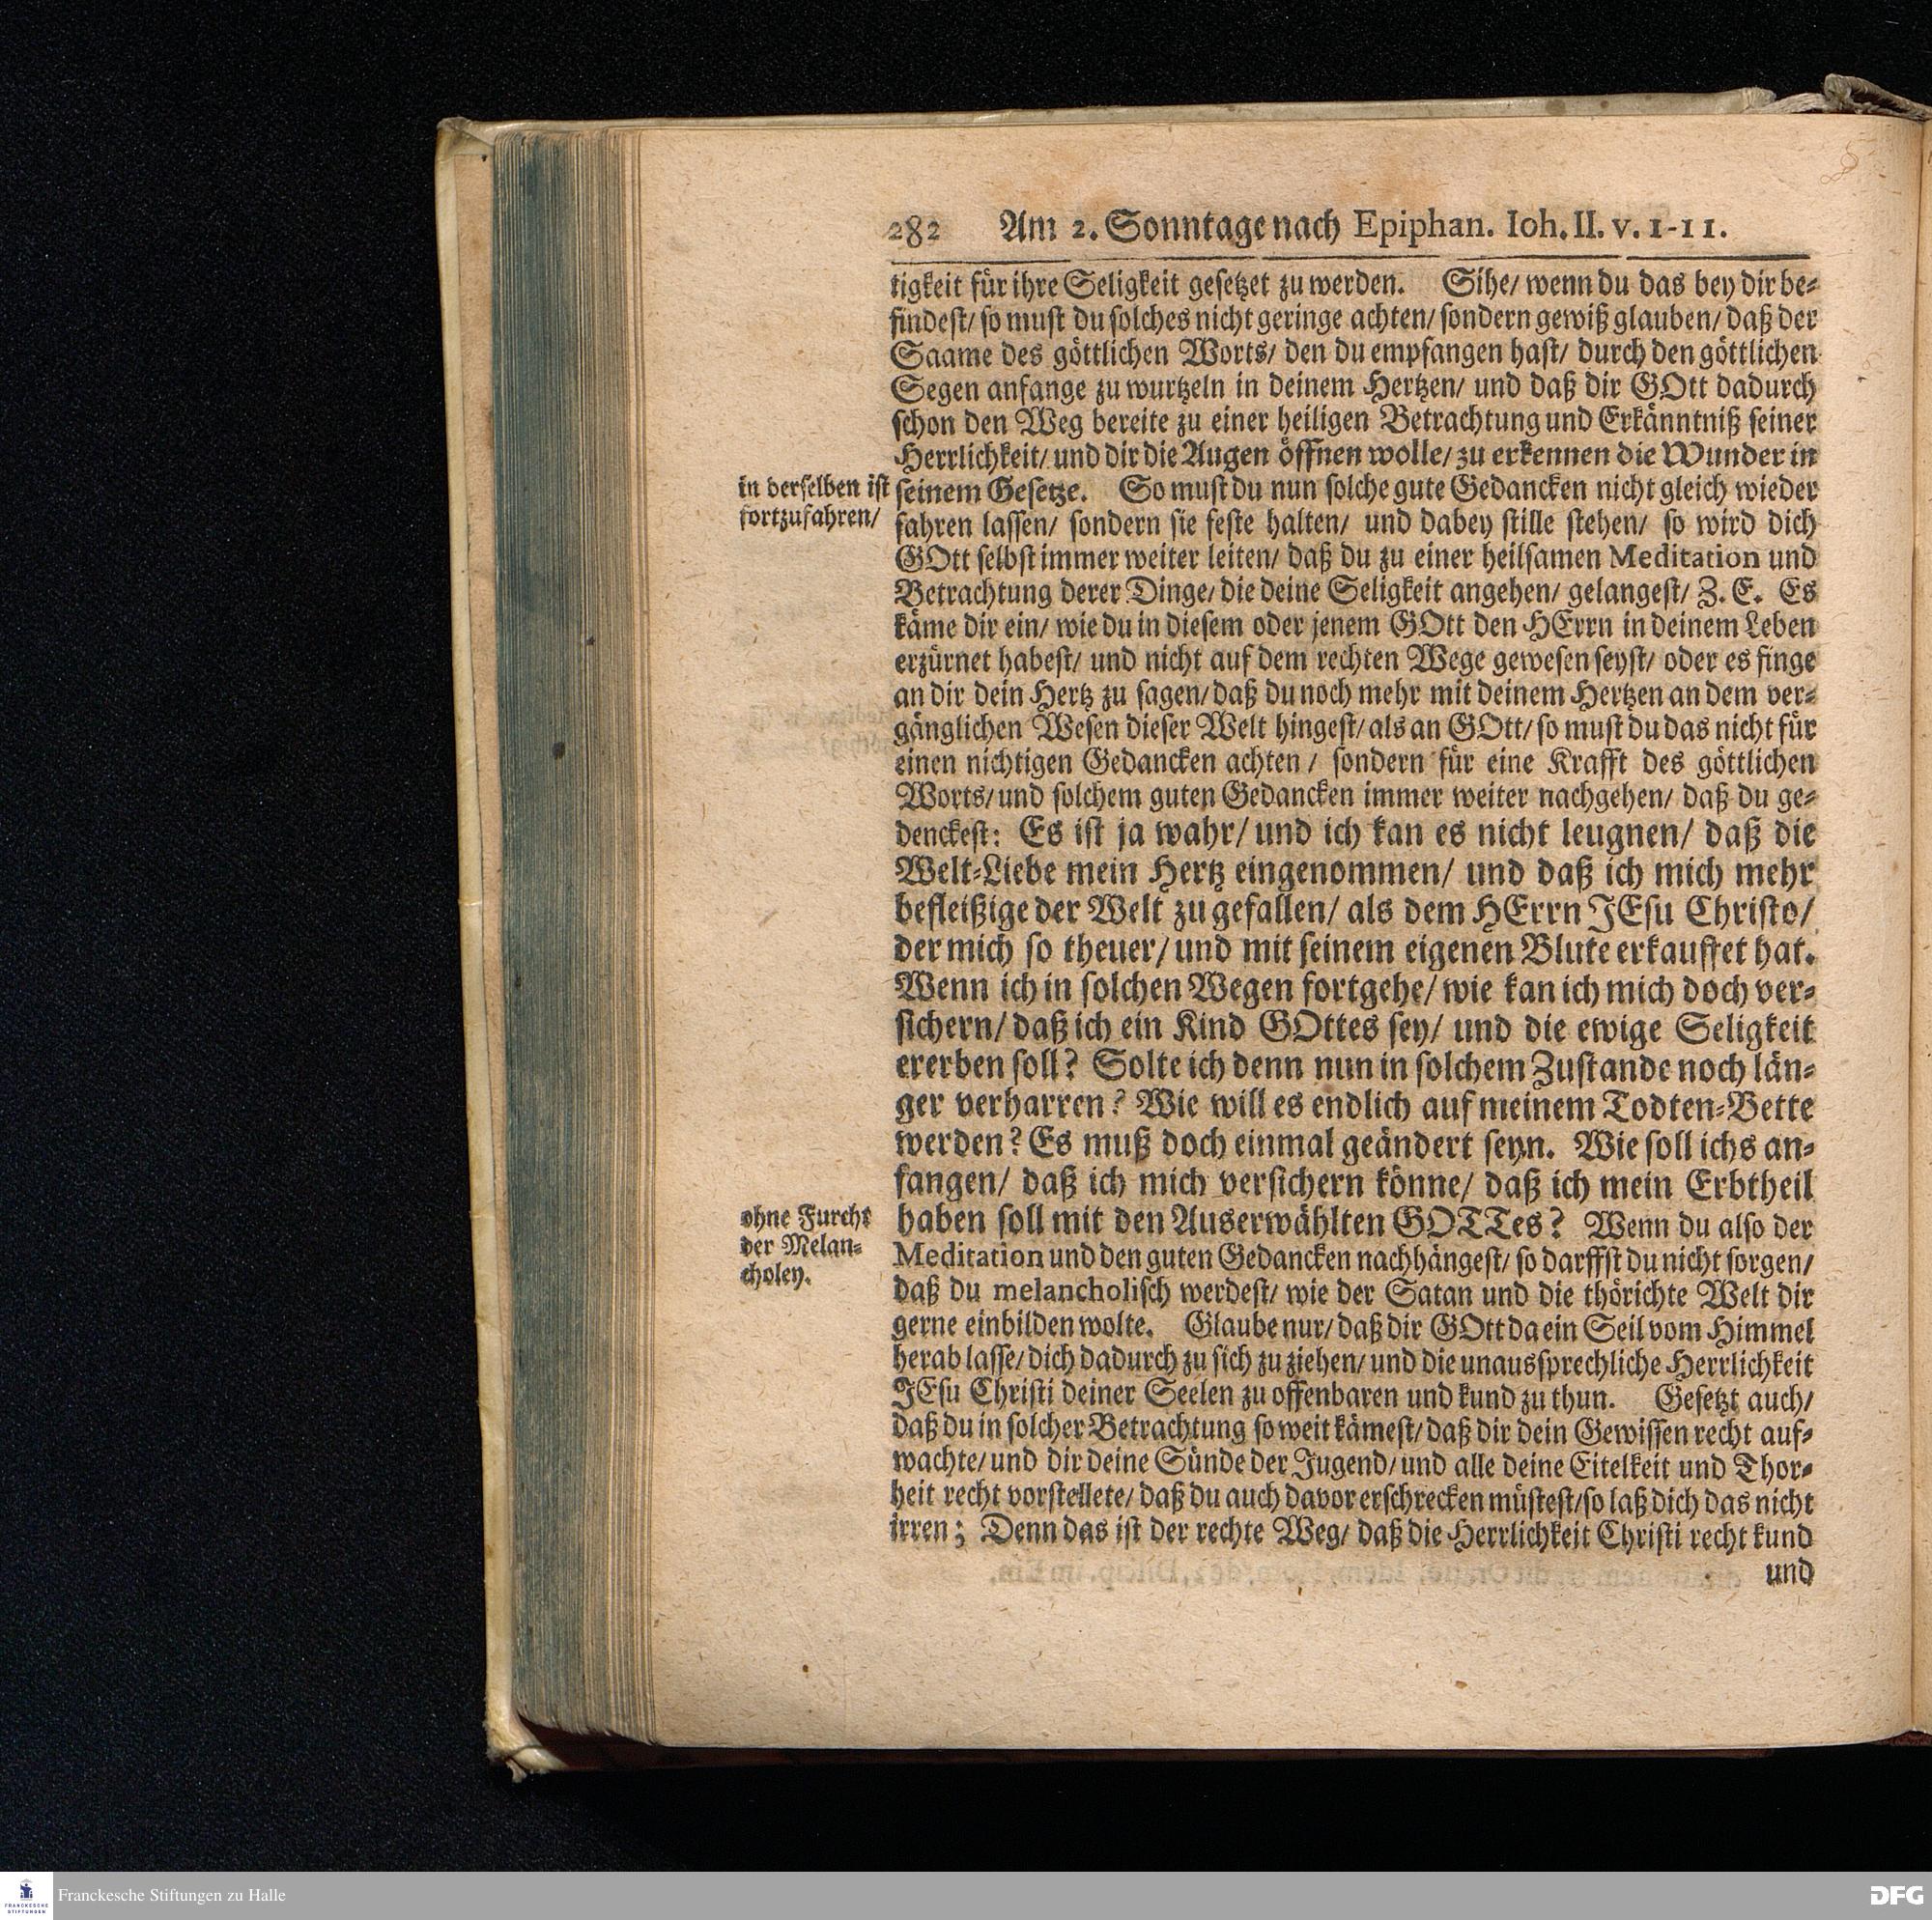 282 Am 2. Sonntage nach Epiphan. Ioh. II. v. 1-11.
tigkeit für ihre Seligkeit gesetzet zu werden. Sihe/ wenn du das bey dir be-
findest/ so must du solches nicht geringe achten/ sondern gewiß glauben/ daß der
Saame des göttlichen Worts/ den du empfangen hast/ durch den göttlichen
Segen anfange zu wurtzeln in deinem Hertzen/ und daß dir GOtt dadurch
schon den Weg bereite zu einer heiligen Betrachtung und Erkänntniß seiner
Herrlichkeit/ und dir die Augen öffnen wolle/ zu erkennen die Wunder in
in derselben ist
fortzufahren/
seinem Gesetze. So must du nun solche gute Gedancken nicht gleich wieder
fahren lassen/ sondern sie feste halten/ und dabey stille stehen/ so wird dich
GOtt selbst immer weiter leiten/ daß du zu einer heilsamen Meditation und
Betrachtung derer Dinge/ die deine Seligkeit angehen/ gelangest/ Z. E. Es
käme dir ein/ wie du in diesem oder jenem GOtt den HErrn in deinem Leben
erzürnet habest/ und nicht auf dem rechten Wege gewesen seyst/ oder es finge
an dir dein Hertz zu sagen/ daß du noch mehr mit deinem Hertzen an dem ver-
gänglichen Wesen dieser Welt hingest/ als an GOtt/ so must du das nicht für
einen nichtigen Gedancken achten/ sondern für eine Krafft des göttlichen
Worts/ und solchem guten Gedancken immer weiter nachgehen/ daß du ge-
denckest: Es ist ja wahr/ und ich kan es nicht leugnen/ daß die
Welt-Liebe mein Hertz eingenommen/ und daß ich mich mehr
befleißige der Welt zu gefallen/ als dem HErrn JEsu Christo/
der mich so theuer/ und mit seinem eigenen Blute erkauffet hat.
Wenn ich in solchen Wegen fortgehe/ wie kan ich mich doch ver-
sichern/ daß ich ein Kind GOttes sey/ und die ewige Seligkeit
ererben soll? Solte ich denn nun in solchem Zustande noch län-
ger verharren? Wie will es endlich auf meinem Todten-Bette
werden? Es muß doch einmal geändert seyn. Wie soll ichs an-
fangen/ daß ich mich versichern könne/ daß ich mein Erbtheil
haben soll mit den Auserwählten GOTTes? Wenn du also der
ohne Furcht
der Melan-
choley.
Meditation und den guten Gedancken nachhängest/ so darffst du nicht sorgen/
daß du melancholisch werdest/ wie der Satan und die thörichte Welt dir
gerne einbilden wolte. Glaube nur/ daß dir GOtt da ein Seil vom Himmel
herab lasse/ dich dadurch zu sich zu ziehen/ und die unaussprechliche Herrlichkeit
JEsu Christi deiner Seelen zu offenbaren und kund zu thun. Gesetzt auch/
daß du in solcher Betrachtung so weit kämest/ daß dir dein Gewissen recht auf-
wachte/ und dir deine Sünde der Jugend/ und alle deine Eitelkeit und Thor-
heit recht vorstellete/ daß du auch davor erschrecken müstest/ so laß dich das nicht
irren; Denn das ist der rechte Weg/ daß die Herrlichkeit Christi recht kund
und
FRANCKESCHE
STIFTUNGEN
Franckesche Stiftungen zu Halle
DFG